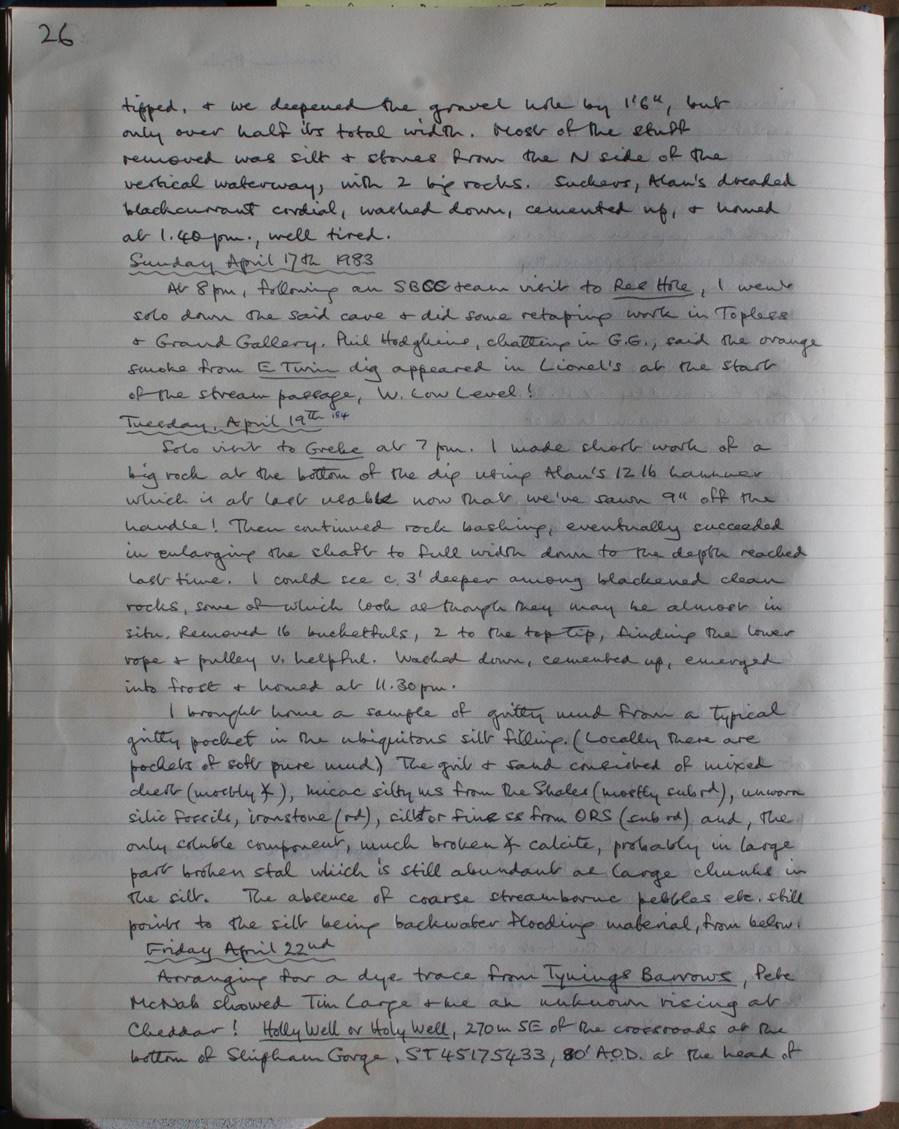 26
tipped, & we deepened the gravel hole by 1'6", but
only over half its total width. Most of the stuff
removed was silt & stones from the N side of the
vertical waterway, with 2 big rocks. Suckers, Alan's dreaded
blackcurrant cordial, washed down, cemented up, & homed
at 1.40 pm., well tired.
Sunday April 17th 1983
At 8 pm, following an SBCC team visit to Res Hole, I went
solo down the said cave & did some retaping work in Topless
& Grand Gallery. Phil Hodgkins, chatting in G.G., said the orange
smoke from E Twin dig appeared in Lionel's at the start
of the stream passage, W. Low Level!
Tuesday, April 19th
Solo visit to Grebe at 7 pm. I made short work of a
big rock at the bottom of the dig using Alan's 12 lb hammer
which is at last usable now that we've sawn 9" off the
handle! Then continued rock bashing, eventually succeeded
in enlarging the shaft to full width down to the depth reached
last time. I could see c. 3' deeper among blackened clean
rocks, some of which look as though they may be almost in
situ. Removed 16 bucketfuls, 2 to the top tip, finding the lower
rope & pulley v. helpful. Washed down, cemented up, emerged
into frost & homed at 11.30 pm.
I brought home a sample of gritty mud from a typical
gritty pocket in the ubiquitous silt filling. (Locally there are
pockets of soft pure mud) The grit & sand consisted of mixed
chert (mostly ), micac silty ms from the Shales (mostly sub rd), unworn
silic fossils, ironstone (rd), silt or fine ss from ORS (sub rd) and, the
only soluble component, much broken calcite, probably in large
part broken stal which is still abundant as large chunks in
the silt. The absence of coarse streamborne pebbles etc. still
points to the silt being backwater flooding material, from below.
Friday April 22nd
Arranging for a dye trace from Tynings Barrows, Pete
McNab showed Tim Large & me an unknown rising at
Cheddar! Holly Well or Holy Well, 270m SE of the crossroads at the
bottom of Shipham Gorge, ST 45175433, 80' A.O.D. at the head of